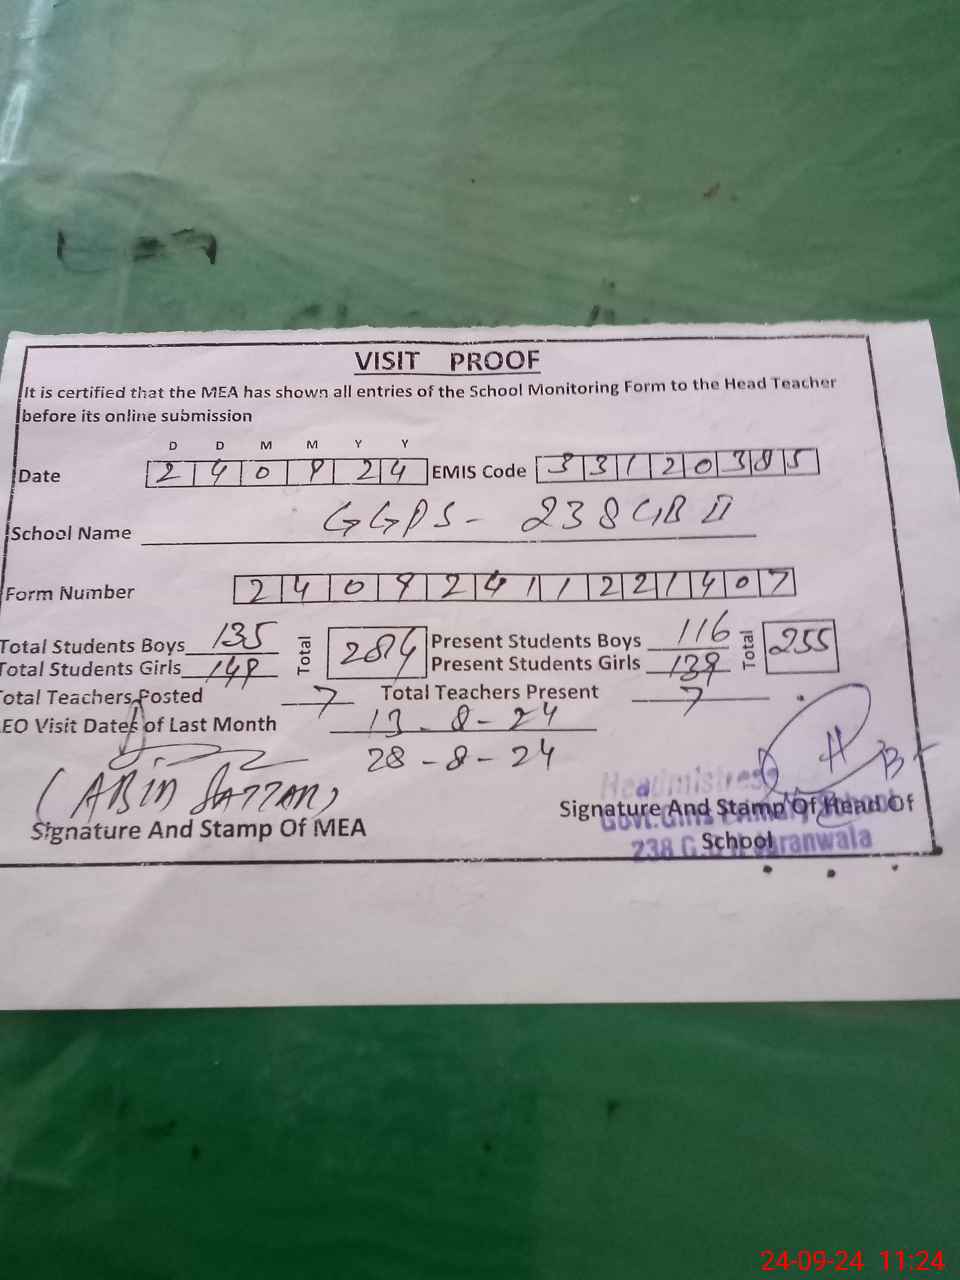 VISIT PROOF
It is certified that the MEA has shown all entries of the School Monitoring Form to the Head Teacher
before its online submission
D D M M Y Y
Date 2 4 0 9 2 4 EMIS Code 3 3 1 2 0 3 8 5
School Name GGPS - 238 GB II
Form Number 2 4 0 9 2 4 1 1 2 2 1 4 0 7
Total Students Boys 135 Total 284 Present Students Boys 116 Total 255
Total Students Girls 149 Present Students Girls 139
Total Teachers Posted 7 Total Teachers Present 7
EO Visit Dates of Last Month 13-8-24
28-8-24
Headmistress
Signature And Stamp Of MEA
Signature And Stamp Of Head Of
School
Govt. Girls Primary School
238 G.B
24-09-24 11:24